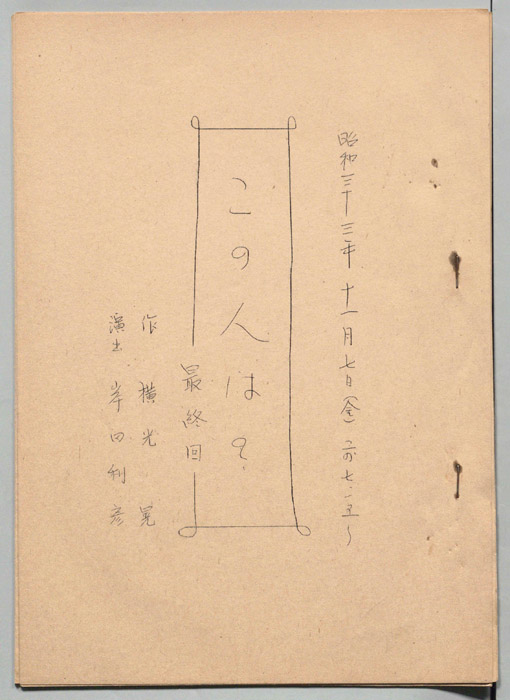 昭和三十三年十一月七日(金)
この人は?
最終回
作 横光 晃
演出 岸田利彦